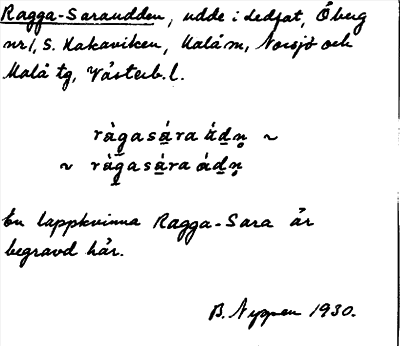 Ragga-Saraudden, udde i dedjat, Öberg
nr 1, S. Kakaviken, Malå sn, Norsjö och
Malå tg, Västerb. l.
ràgasára údn̥ ~
~ ràgasára ádn̥
En lappkvinna Ragga-Sara är
begravd här.
B. Nyman 1930.